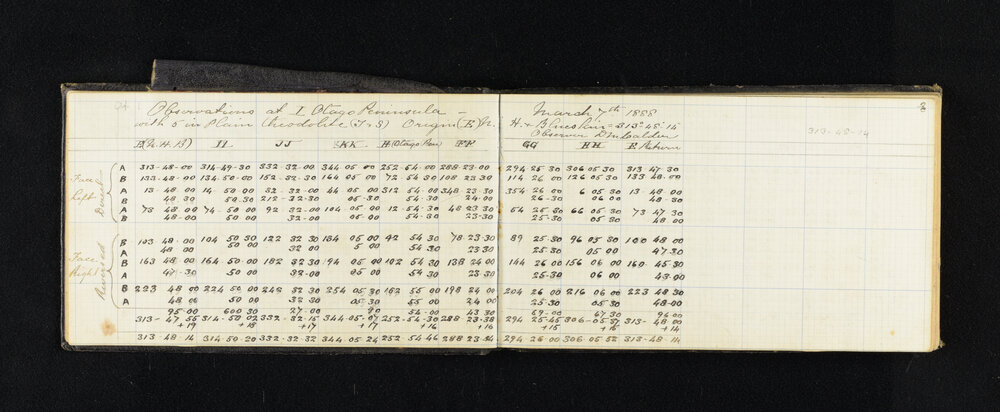 Observations at I Otago Peninsula - March 7th 1888
with 5 in Plain Theodolite (T & S) Origin (E N. H. & B lines Kair = 313° 48' 14"
Observer
E(N. H. B) II JJ KK H (Otago Pen) FF GG HH E Return
A 313-48-00 314-49-30 332-32-00 344 05 00 252-54-00 288-23-00 294 25-30 306 05 30 313 47-30
B 133-48-00 134-50-00 152-32-30 164 05 00 72 54 30 108 23 30 114 26 00 126 05 30 133 48-00
Face Left Direct
A 13-48-00 14-50-00 32-32-00 44 05 00 312 54-00 348 23-30 354 26 00 6 05 30 13-48-00
B 48 30 50 30 212-32-30 05 30 54-30 24-00 26-30 06 00 48-30
A 73 48 00 74-50 00 92 32-00 104 05 00 12-54-30 48 23 30 54 25 30 66 05 30 73 47 30
B 48-00 50 00 32-00 05 00 54-30 23-30 25-30 05 30 48 00
B 103 48-00 104 50 30 122 32 30 134 05 00 42 54 30 78-23-30 89 25-30 96 05-30 103 48 00
A 48 00 50 00 32 00 5 00 54-30 23 30 25 30 05 00 47-30
Face Right Reversed
B 163 48 00 164 50-00 182 32 30 194 05 00 102 54 30 138 24 00 144 26 00 156 06 00 160 45-30
A 47-30 50 00 32-00 05 00 54 30 23 30 25-30 06 00 48-00
B 223 48 00 224 50 00 242 32 30 254 05 30 162 55 00 198 24 00 204 26 00 216 06 00 223 48 30
A 48 00 50 00 32 30 05 30 55 00 24 00 25-30 05 30 48-00
95-00 600 30 27-00 80 54-00 43 30 59-00 67 30 96 00
313-47 55 314-50 02 332-32-15 344-05-07 252-54-30 288 23-38 294 25-45 306-05-37 313-48 00
+19 +18 +17 +17 +16 +16 +15 +15 +14
313 48-14 314-50-20 332-32-32 344 05 24 252 54-46 288 23-54 294 26 00 306 05 52 313-48-14
313-48-14